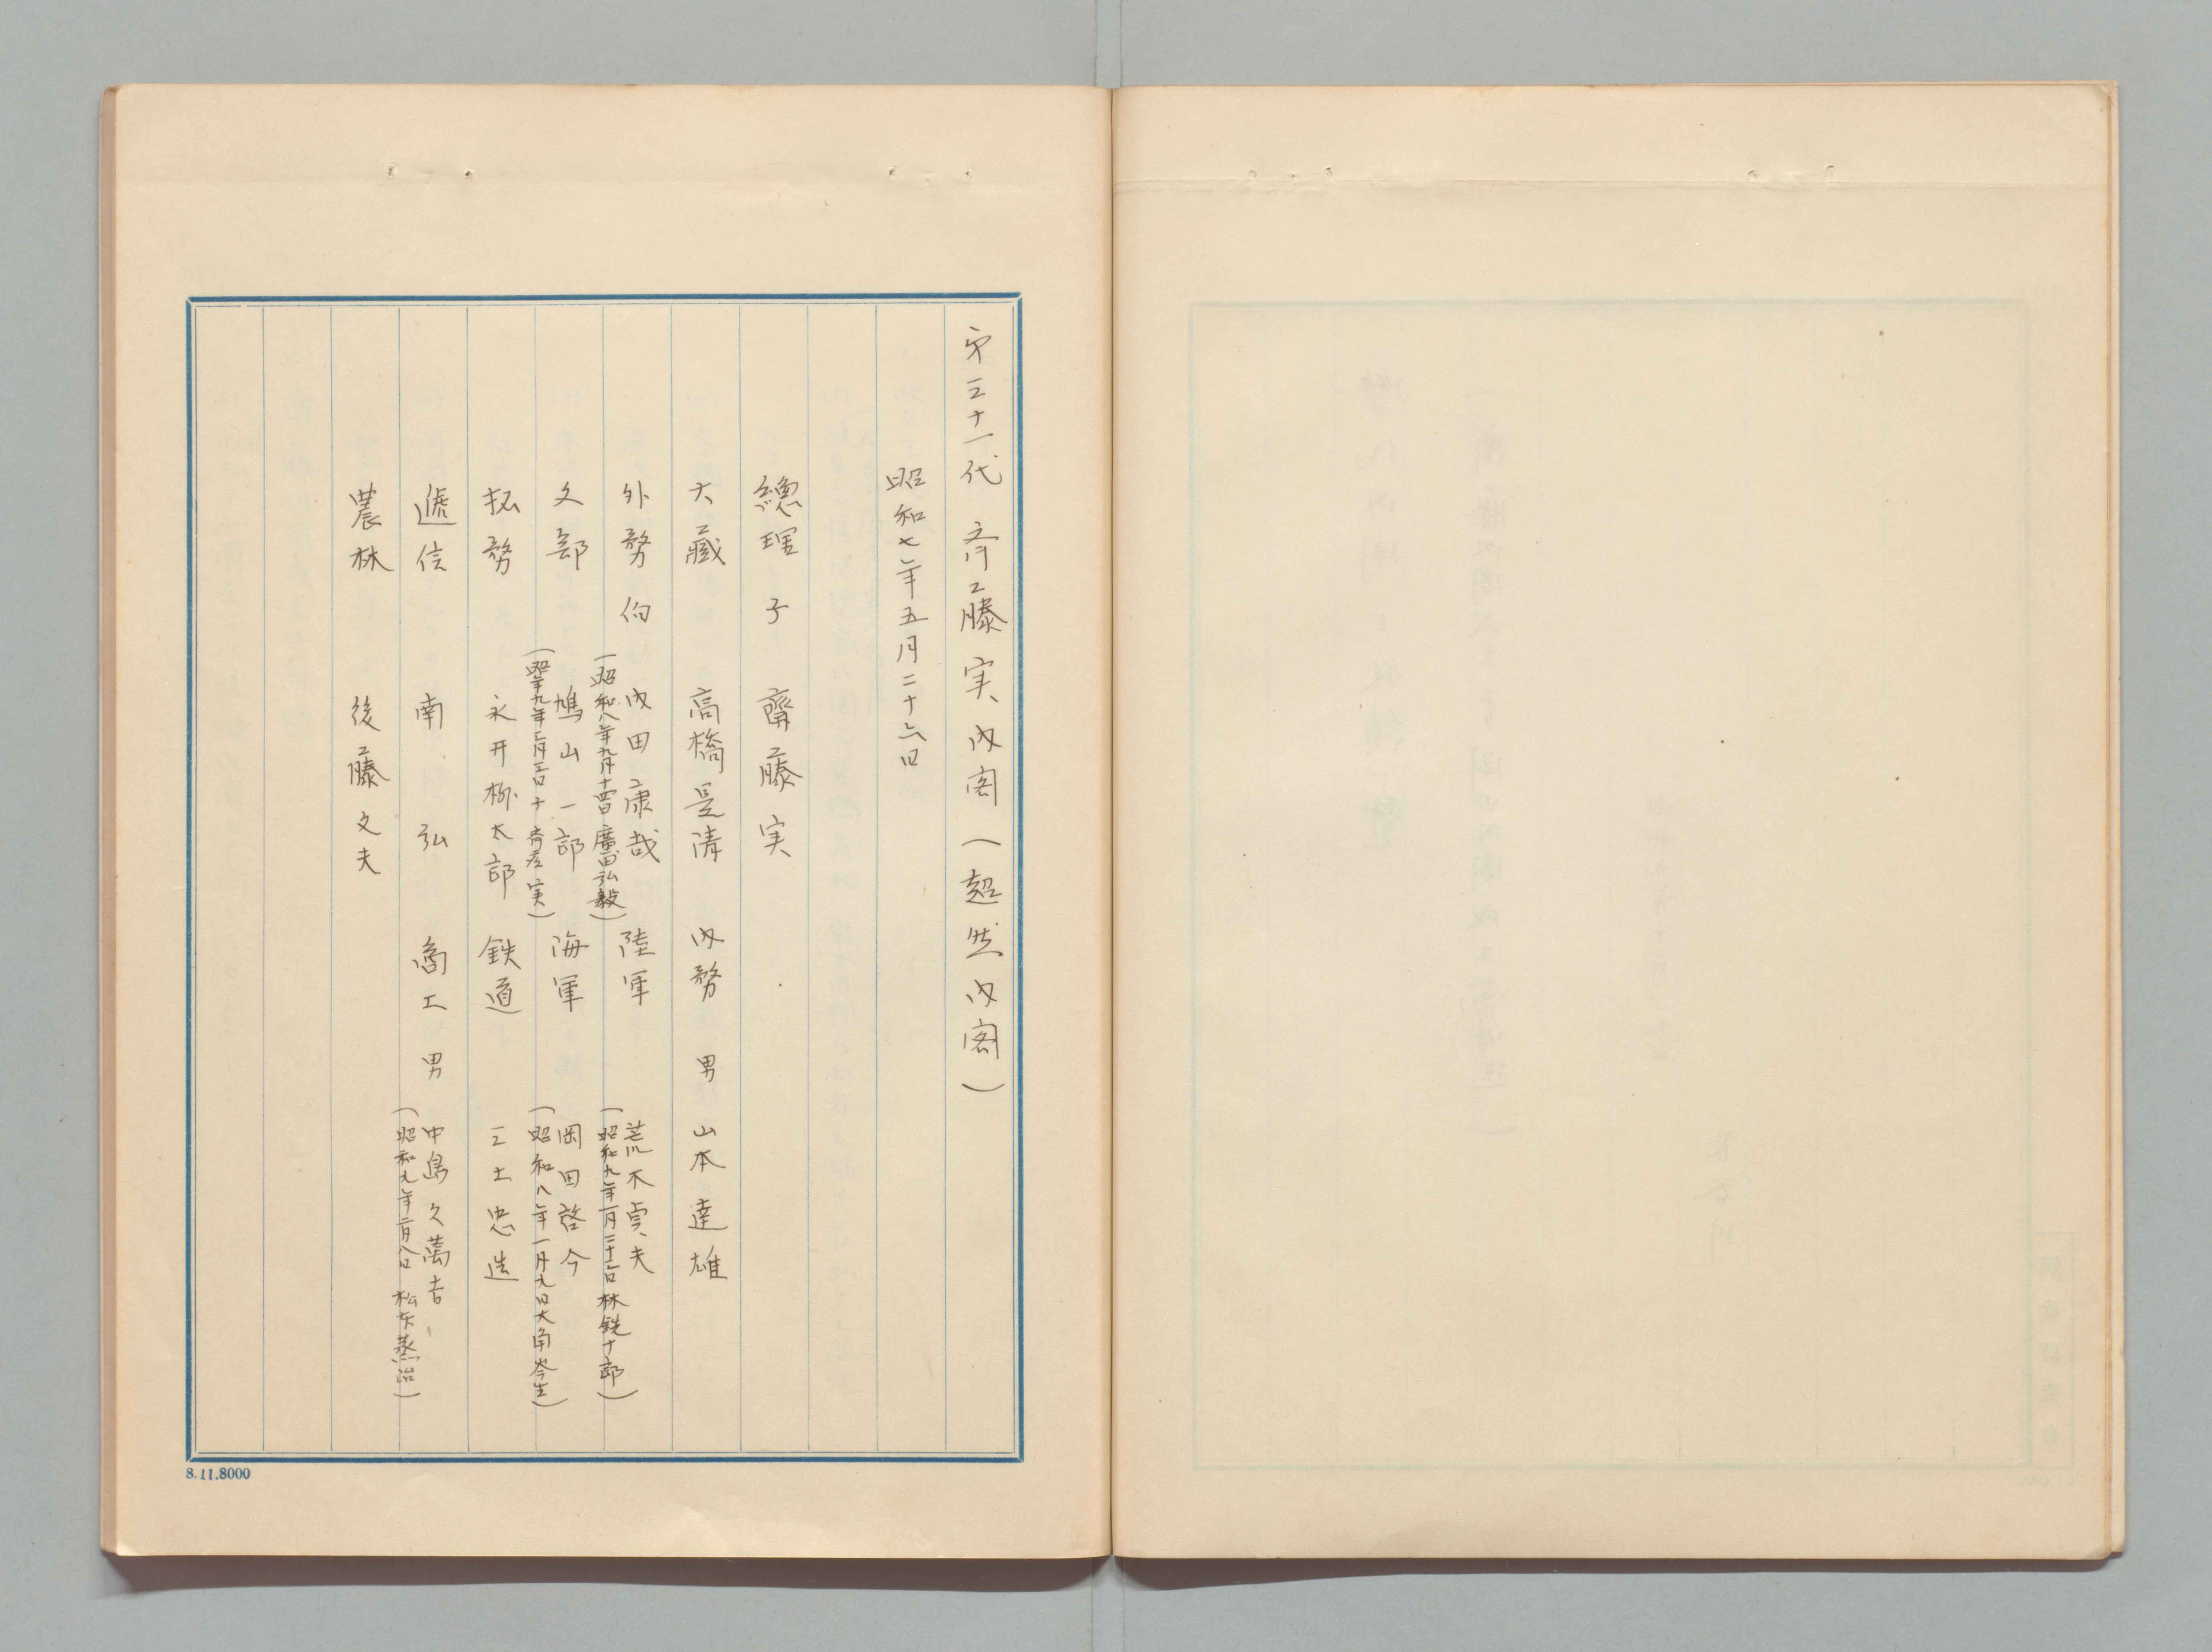 第三十一代 斉藤実内閣(超然内閣)
昭和七年五月二十六日
總理 子 齋藤実
大藏 高橋是清 内務 男 山本達雄
外務 伯 内田康哉 陸軍 荒木貞夫
(昭和八年九月十四日 廣田弘毅) (昭和九年一月二十三日 林銑十郎)
文部 鳩山一郎 海軍 岡田啓介
(昭和九年三月三日 斉藤実) (昭和八年一月九日大角岑生)
拓務 永井柳太郎 鉄道 三土忠造
逓信 南弘 商工 男 中島久萬吉
(昭和九年二月八日 松本蒸治)
農林 後藤文夫
8.11.8000